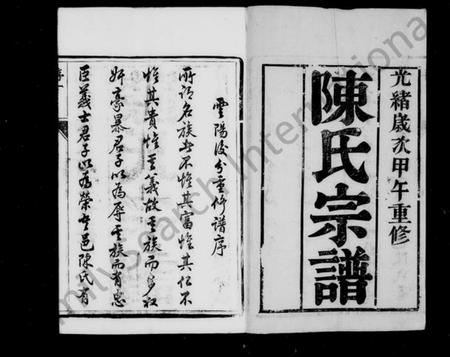 光緒歲次甲午重修
陳氏宗譜
雲陽後分重修譜序
所謂名族者不惟其富惟其仁不
惟其貴惟其義故其族而有權
奸豪暴君子以為辱其族而有忠
臣義士君子以為榮吾邑陳氏有